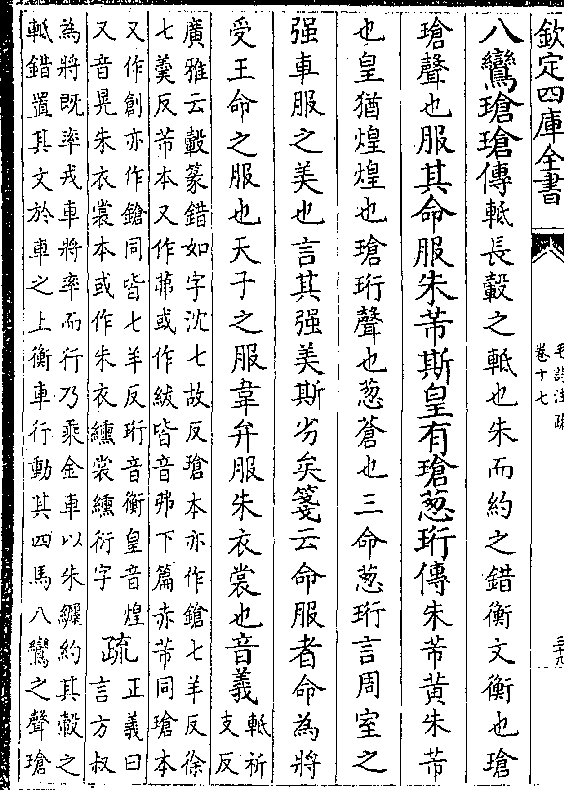 欽定四庫全書
毛詩注疏
卷十七
八鸞瑲瑲傳軝長轂之軝也朱而約之錯衡文衡也瑲
瑲聲也服其命服朱芾斯皇有瑲葱珩傳朱芾黄朱芾
也皇猶煌煌也瑲珩聲也葱蒼也三命葱珩言周室之
强車服之美也言其强美斯劣矣箋云命服者命為將
受王命之服也天子之服韋弁服朱衣裳也音義軝祈
支反
廣雅云轂篆錯如字沈七故反瑲本亦作鎗七羊反徐
七羮反芾本又作茀或作紱皆音弗下篇赤芾同瑲本
又作創亦作鎗同皆七羊反珩音衡皇音煌
又音晃朱衣裳本或作朱衣纁裳纁衍字
疏正義曰
言方叔
為將既率戎車將率而行乃乘金車以朱纒約其轂之
軝錯置其文於車之上衡車行動其四馬八鸞之聲瑲